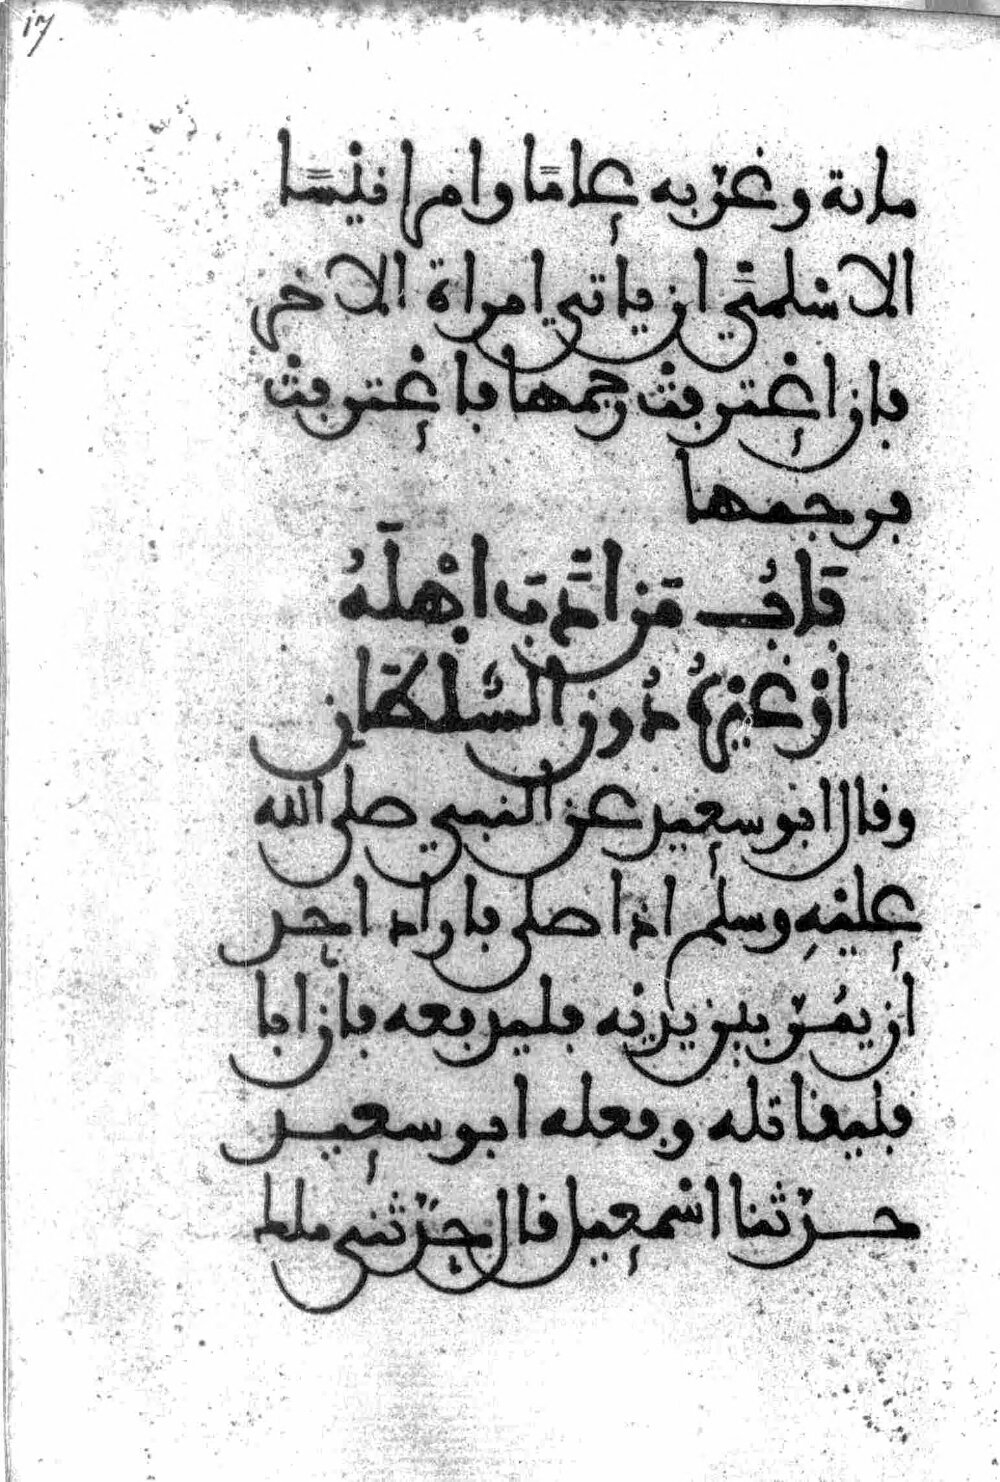 17
ماية وغربه عاما وامر انيسا
الاسلمي ان ياتي امراة الاخر
فان اعترفت رجمها فاعترفت
فرجمها
باب من ادب اهله
او غيره دون السلطان
وقال ابو سعيد عن النبي صلى الله
عليه وسلم اذا صلى فاراد احد
ان يمر بين يديه فليدفعه فان ابا
فليقاتله وفعله ابو سعيد
حدثنا اسمعيل قال حدثني ملك